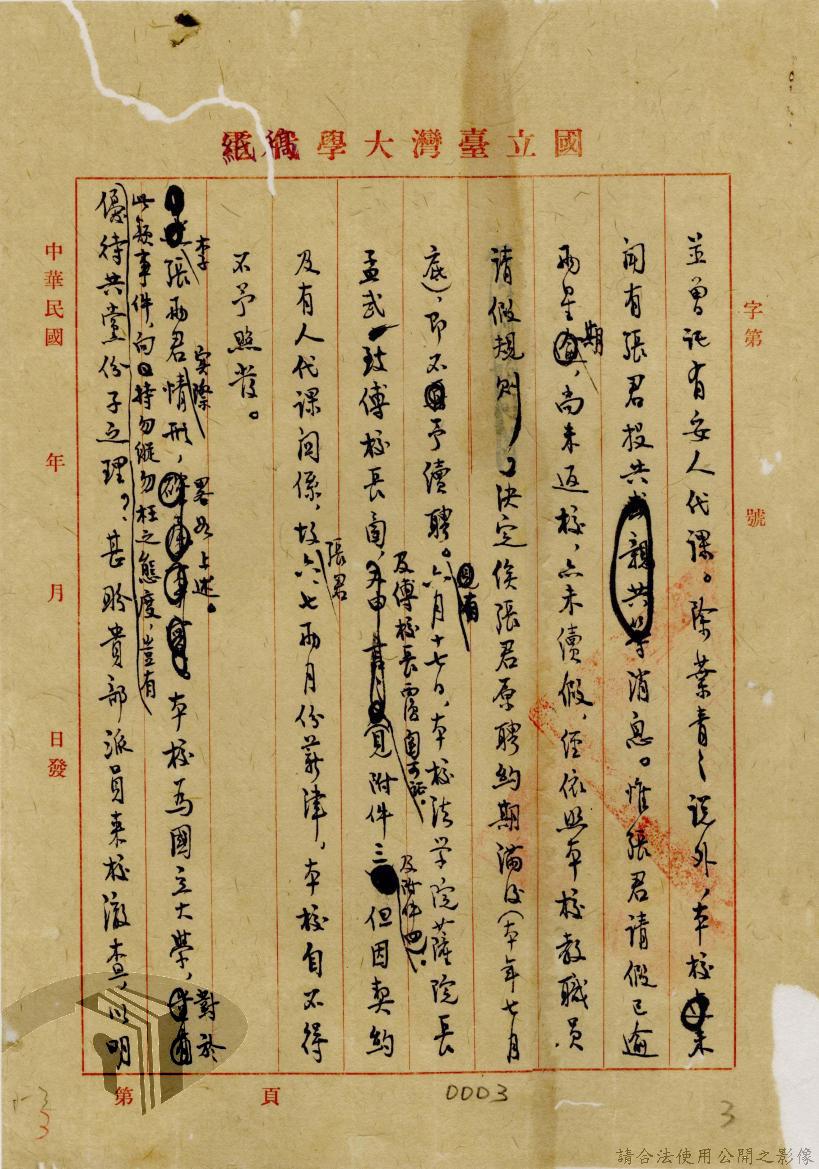 國立臺灣大學稿紙
字第 號
並曾託有妥人代課。除葉青之說外,本校未
聞有張君投共等消息。惟張君請假已逾
兩星期,尚未返校,亦未續假,經依照本校教職員
請假規則,決定俟張君原聘約期滿後(本年七月
底),即不予續聘。六月十七日,本校法學院薩院長
孟武致傅校長函,及傅校長覆函可證。
見附件三及附件四。但因契約
及有人代課關係,故張君六、七兩月份薪津,本校自不得
不予照發。
李張兩君實際情形,畧如上述。本校為國立大學,對於
此類事件,向持勿縱勿枉之態度,豈有
優待共黨份子之理?甚盼貴部派員來校澈查,以明
中華民國 年 月 日發
第 頁
0003
3
請合法使用公開之影像